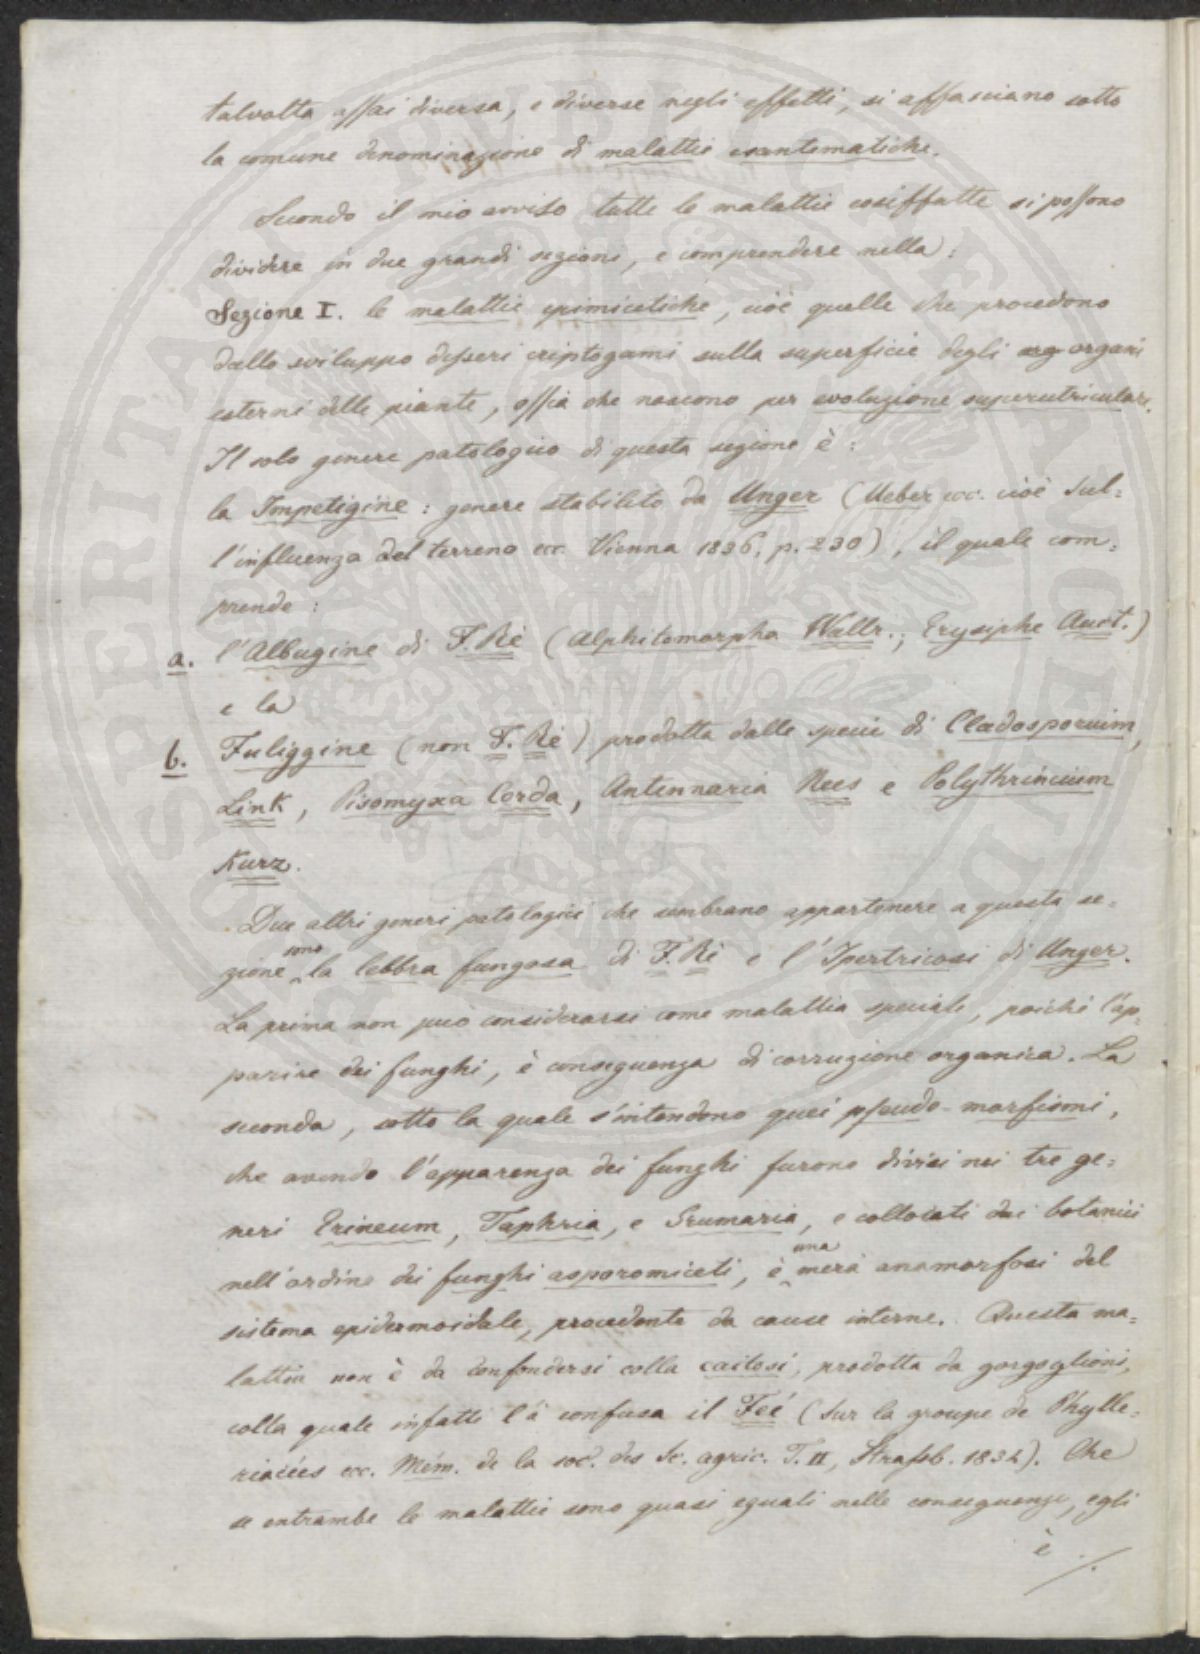 talvolta assai diversa, e diverse negli effetti, si affasciano sotto
la comune denominazione di malattie esantematiche.
Secondo il mio avviso tutte le malattie cosiffatte si possono
dividere in due grandi sezioni, e comprendere nella:
Sezione I. le malattie epimicetiche, cioè quelle che procedono
dallo sviluppo d'esseri criptogami sulla superficie degli org organi
esterni delle piante, ossia che nascono per evoluzione superutricolare.
Il solo genere patologico di questa sezione è:
la Impetigine: genere stabilito da Unger (Ueber ecc. cioè Sul=
l'influenza del terreno ecc. Vienna 1836, p. 230), il quale com=
prende:
a. l'Albugine di F. Rè (Alphitomorpha Wallr.; Erysiphe Auct.)
e la
b. Fuliggine (non F. Rè) prodotta dalle specie di Cladosporium,
Link, Pisomyxa Corda, Antennaria Nees e Polythrincium
Kunz.
Due altri generi patologici che sembrano appartenere a questa se=
zione sono la lebbra fungosa di F. Rè e l'Ipertricosi di Unger.
La prima non può considerarsi come malattia speciale, poichè l'ap=
parire dei funghi, è conseguenza di corruzione organica. La
seconda, sotto la quale s'intendono quei pseudo-morfismi,
che avendo l'apparenza dei funghi furono divisi nei tre ge=
neri Erineum, Taphria, e Grumaria, e collocati dai botanici
nell'ordine dei funghi asporomiceti, è una mera anamorfosi del
sistema epidermoidale, procedente da cause interne. Questa ma=
lattia non è da confondersi colla caitosi, prodotta da gorgoglioni,
colla quale infatti l'à confusa il Feé (Sur la groupe de Phylle=
riacées ecc. Mém. de la soc. des Sc. agric. T. II, Strasb. 1834). Che
se entrambe le malattie sono quasi eguali nelle conseguenze, egli
è ./.